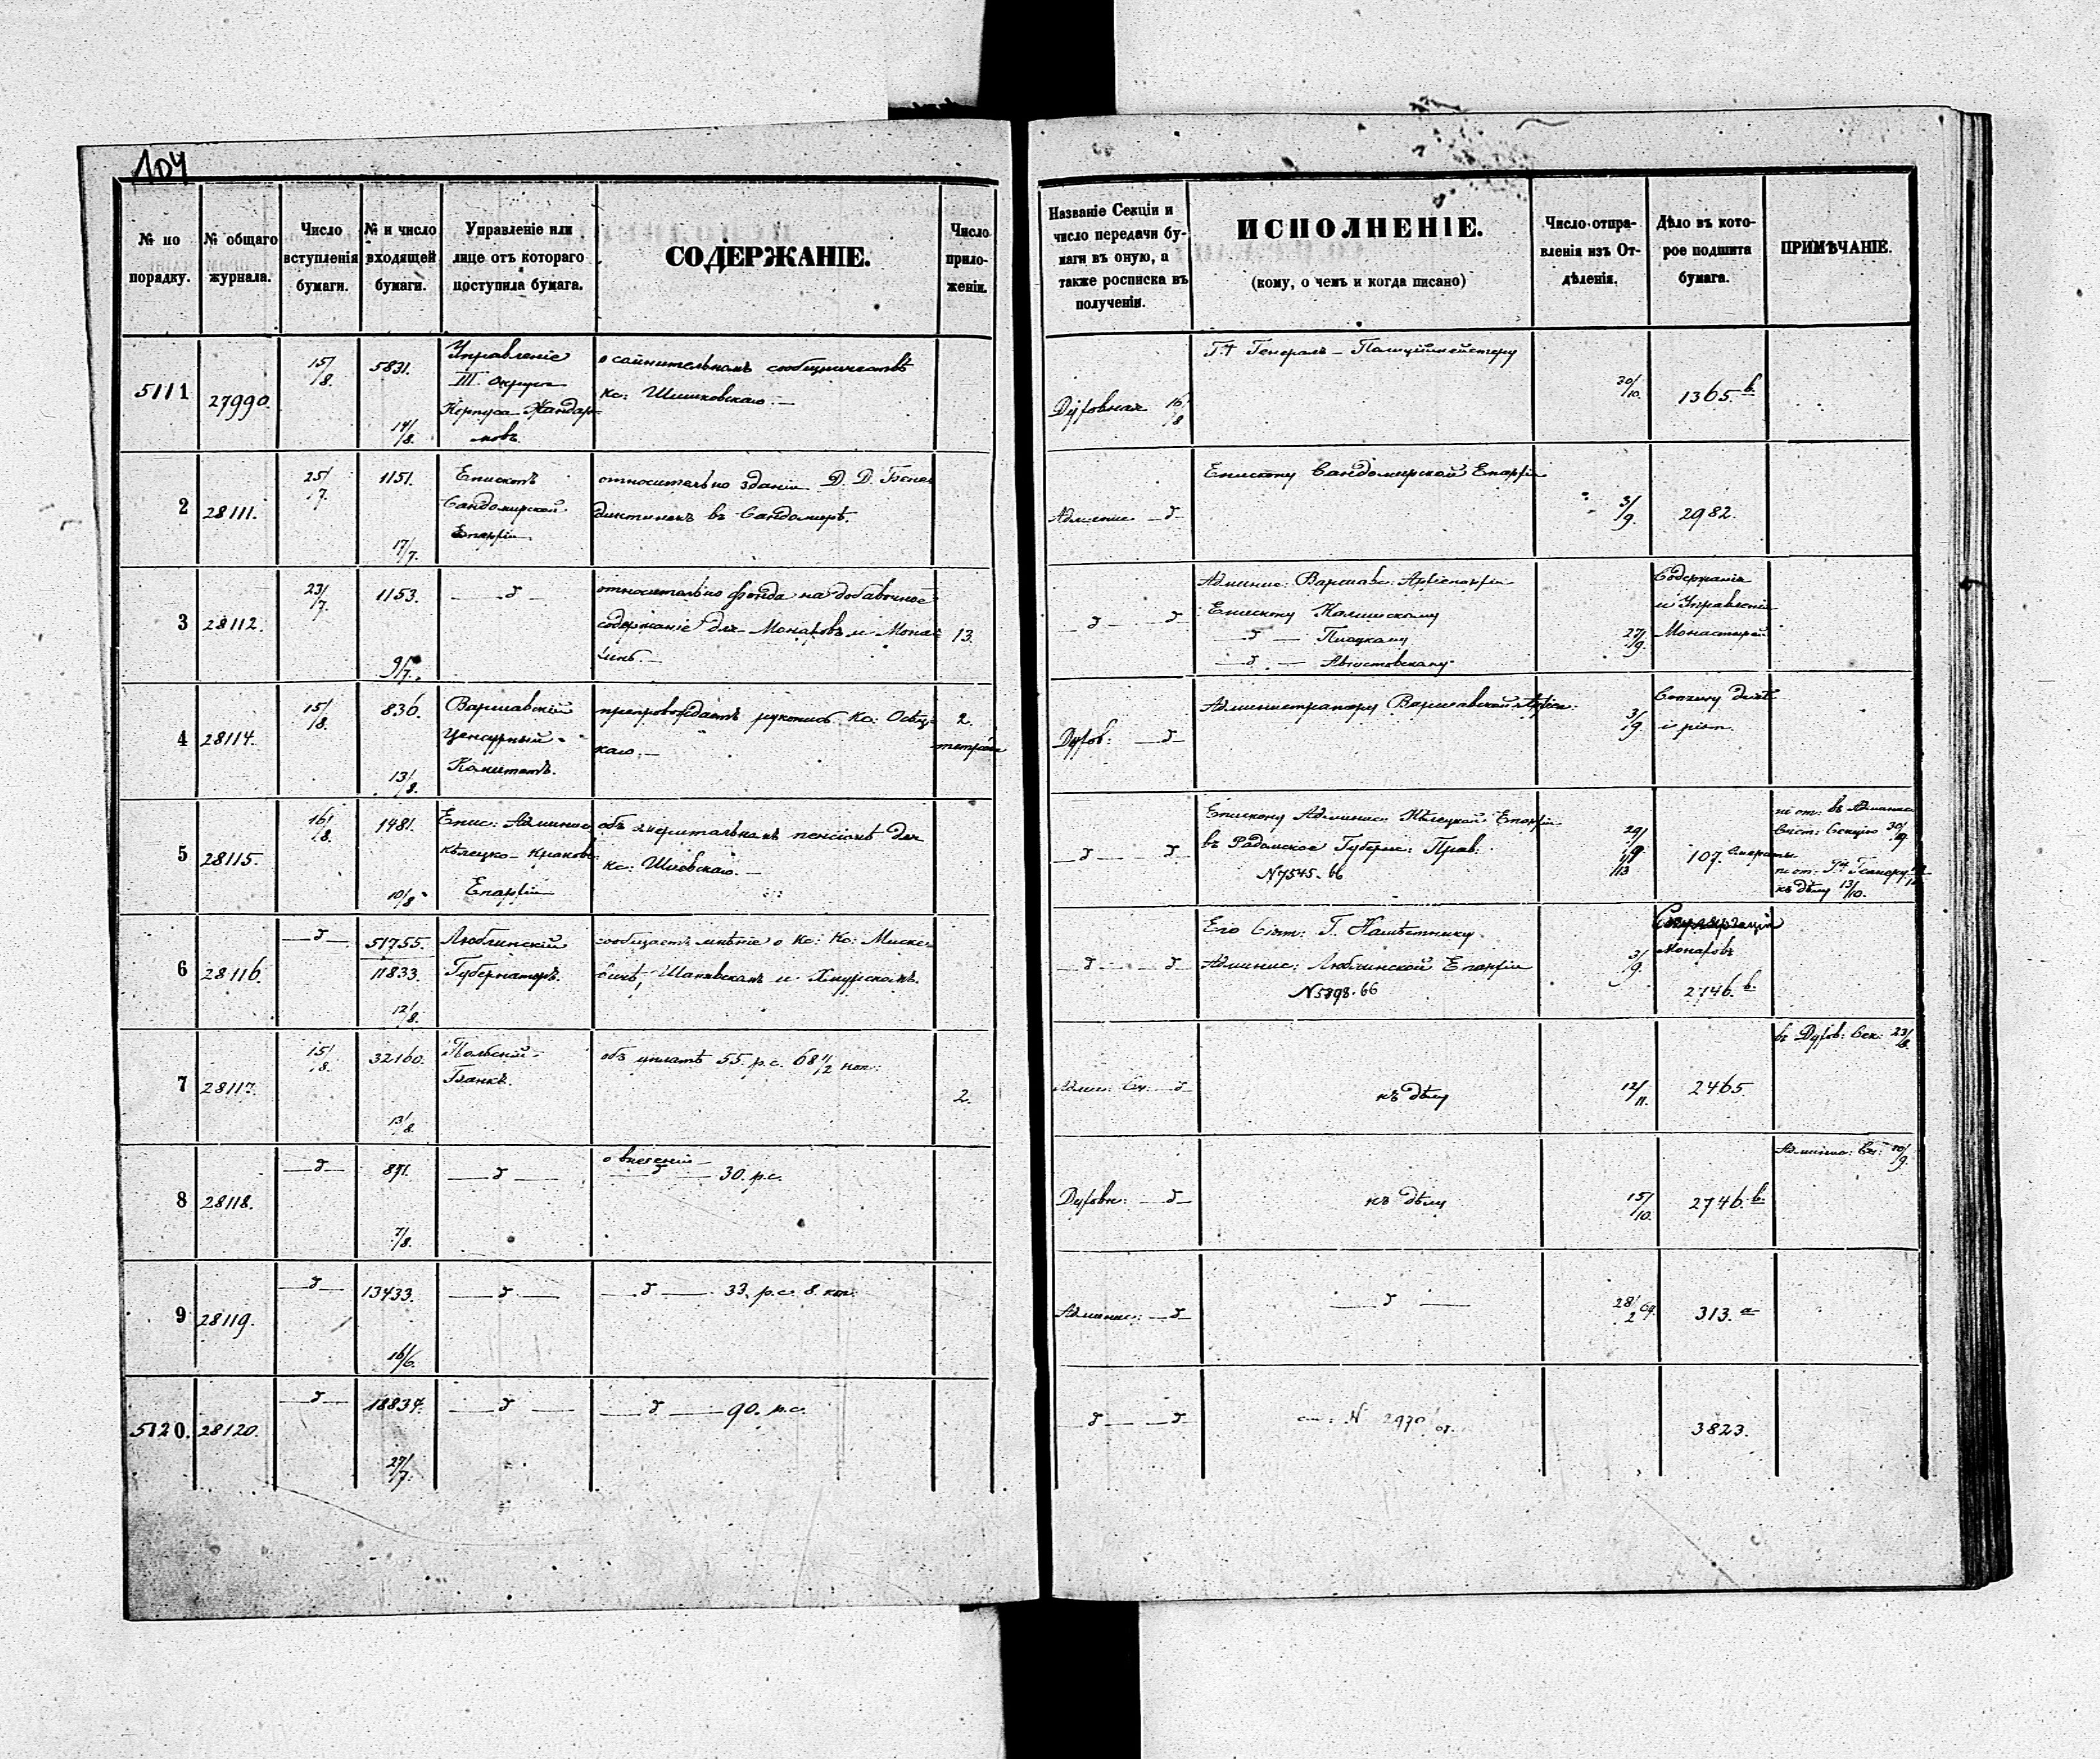 104
№ по порядку.
№ общаго журнала.
Число вступленія бумаги.
№ и число входящей бумаги.
Управленіе или лице отъ котораго поступила бумага.
СОДЕРЖАНІЕ.
Число приложеній.
Названіе Секціи и число передачи бумаги въ оную, а также росписка въ полученіи.
ИСПОЛНЕНІЕ.
(кому, о чемъ и когда писано)
Число отправленія изъ Отдѣленія.
Дѣло въ которое подшита бумага.
ПРИМѢЧАНІЕ.
5111 27990. 15/8. 5831. 14/8.
Управленіе
III Округа
Корпуса Жандар-
мовъ.
о сомнительномъ сообщничествѣ
Кс: Шишковскаго.—
Духовная 16/8
Г.+ Генералъ-Полиціймейстеру
30/10. 1365.в.
2 28111. 25/7. 1151. 17/7.
Епископъ
Сандомирской
Епархіи.
относительно зданія Д. Д. Бене
диктинокъ въ Сандомирѣ.
Админис —д—
Епископу Сандомирской Епархіи
3/9. 2982.
3 28112. 23/7. 1153. 9/7.
—д—
относительно фонда на добавочное
содержаніе для Монаховъ и Мона-
хинь.—
13.
—д— —д
Админис: Варшавс: Архіепархіи
Епископу Калишскому
—д— Плоцкому
—д— Августовскому
27/9.
Содержаніе
и Управленіе
Монастырей
4 28114. 15/8. 836. 13/8.
Варшавскій
Цензурный
Комитетъ.
препровождаетъ рукопись Кс:
каго.—
2.
тетради
Духов: —д—
Администратору Варшавской Архіеп:
3/9.
5 28115. 16/8. 1481. 10/8.
Епис: Админис
Кѣлецко-Краковс:
Епархіи
объ эмеритальномъ пенсіонѣ для
Кс: Шиовскаго.—
—д— —д
Епископу Админис: Кѣлецкой Епархіи
въ Радомское Губерн: Прав:
N 7545. 66
29/9.
107. Эмериты.
въ Админис
Секцію 30/9.
къ дѣлу 13/10.
6 28116. —д— 51755. 11833. 12/8.
Люблинскій
Губернаторъ.
сообщаетъ мнѣніе о Кс: Кс: Миске-
вичѣ, Шанявскомъ и Хмурскомъ.
—д— —д
Его Сіят: Г. Намѣстнику.
Админис: Люблинской Епархіи
N 5898. 66
3/9.
Монаховъ
2746.в.
7 28117. 15/8. 32160. 13/8.
Польскій
Банкъ.
объ уплатѣ 55. р.с. 68 1/2 коп:
2.
Админ. Сек: —д—
къ дѣлу
12/11. 2465
въ Духов: Сек: 23/8.
8 28118. —д— 871. 7/8.
—д—
о внесеніи
—д— 30. р.с.
Духовн: —д—
къ дѣлу
15/10. 2746.в.
Админис: Сек: 30/9.
9 28119. —д— 13433. 16/6.
—д—
—д— 33. р.с. 8. коп:
Админис: —д—
—д—
28/2 69. 313.а
5120. 28120. —д— 18834. 27/7.
—д—
—д— 90. р.с.
—д— —д—
N 2970
3823.